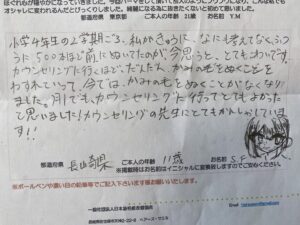 オシャレに変われるんだとびっくりしました。綺麗になる為にあきらめてないと初めて思いました。
都道府県 東京都 ご本人の年齢 21歳 お名前 Y.M
小学4年生の2学期ごろ、私がきゅうに、なにも考えてなくふつう
に500本ほど前にぬいてたのが、今思うと、とてもこわいです。
カウンセリングに行くほど、だんだん、かみのもをぬくことを
わすれていって、今では、かみのもをぬくことがなくなり
ました。月1でも、カウンセリングに行ってとてもよかった
と思いました!カウンセリングの先生にとてもかんしゃしていま
す!!
都道府県 長崎県 ご本人の年齢 11歳 お名前 S.F
※掲載時はお名前はイニシャルに変換致しますのでご安心ください。
※ボールペンや濃い目の鉛筆等でご記入下さいます様お願いいたします。